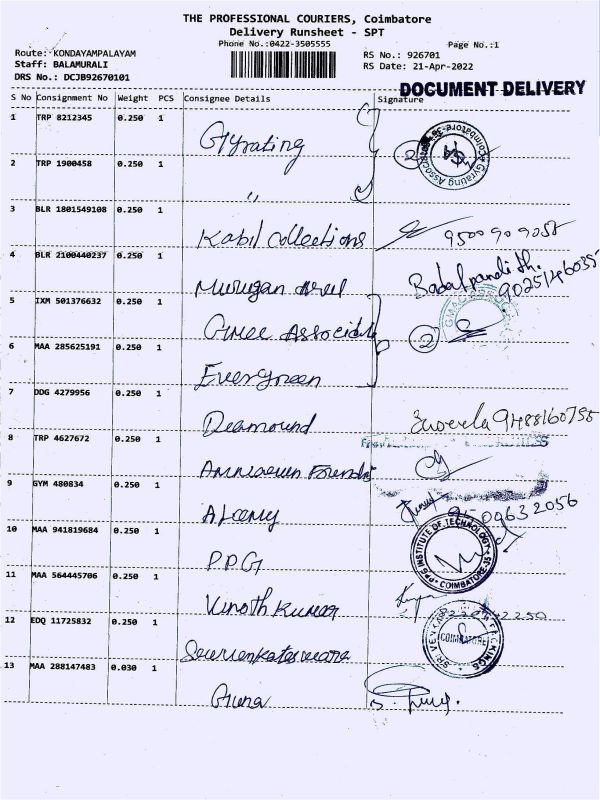 THE PROFESSIONAL COURIERS, Coimbatore
Delivery Runsheet - SPT
Phone No.:0422-3505555
Page No.:1
Route: KONDAYAMPALAYAM
RS No.: 926701
Staff: BALAMURALI
RS Date: 21-Apr-2022
DRS No.: DCJB92670101
DOCUMENT DELIVERY
S No Consignment No Weight PCS Consignee Details Signature
1 TRP 8212345 0.250 1 Gyrating
2 TRP 1900458 0.250 1 "
3 BLR 1801549108 0.250 1 Kabil Collections
4 BLR 2100440237 0.250 1 Murugan
5 IXM 501376632 0.250 1 Associate
6 MAA 285625191 0.250 1 Evergreen
7 DDG 4279956 0.250 1 Deamound
8 TRP 4627672 0.250 1
9 GYM 480834 0.250 1
10 MAA 941819684 0.250 1 PPG
11 MAA 564445706 0.250 1 Vinoth Kumar
12 EDQ 11725832 0.250 1
13 MAA 288147483 0.030 1
2
Gyrating Associates
Coimbatore
2
INSTITUTE OF TECHNOLOGY
COIMBATORE
COIMBATORE